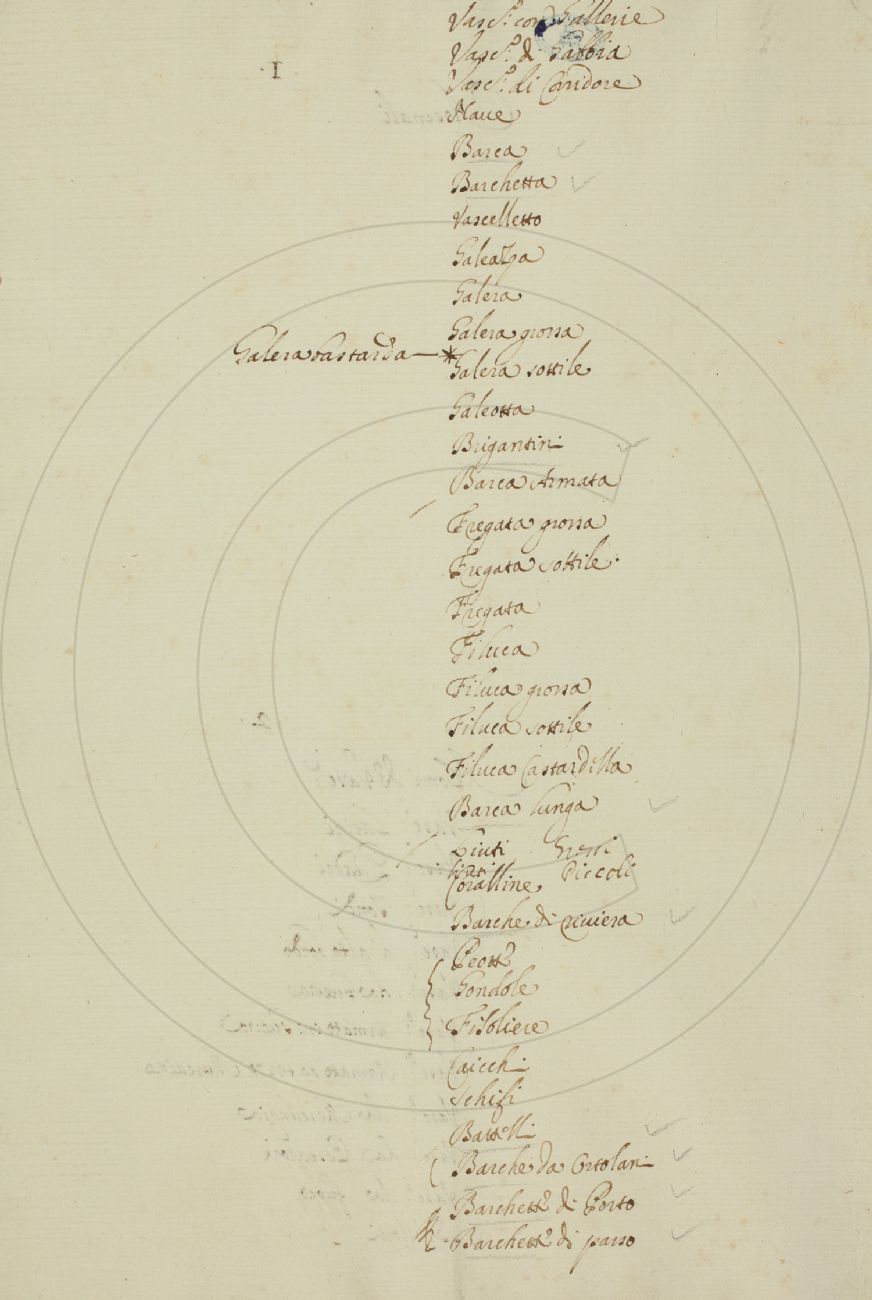 Vasc.º con Gallerie
Vasc.º di Gabbia
1.
Vasc.º di Coridore
Naue
Barca
Barchetta
Vascelletto
Galeazza
Galera
Galera grossa
Galera bastarda — *
Galera sottile
Galeotta
Brigantini
Barca Armata
Fregata grossa
Fregata sottile
Fregata
Filuca
Filuca grossa
Filuca sottile
Filuca Castardella
Barca lunga
Liuti Grossi
Coralline Piccoli
Barche di riuiera
Peotte
Gondole
Fisoliere
Caicchi
Schifi
Battelli
Barche da Ortolani
Barchette di Porto
Barchette di passo